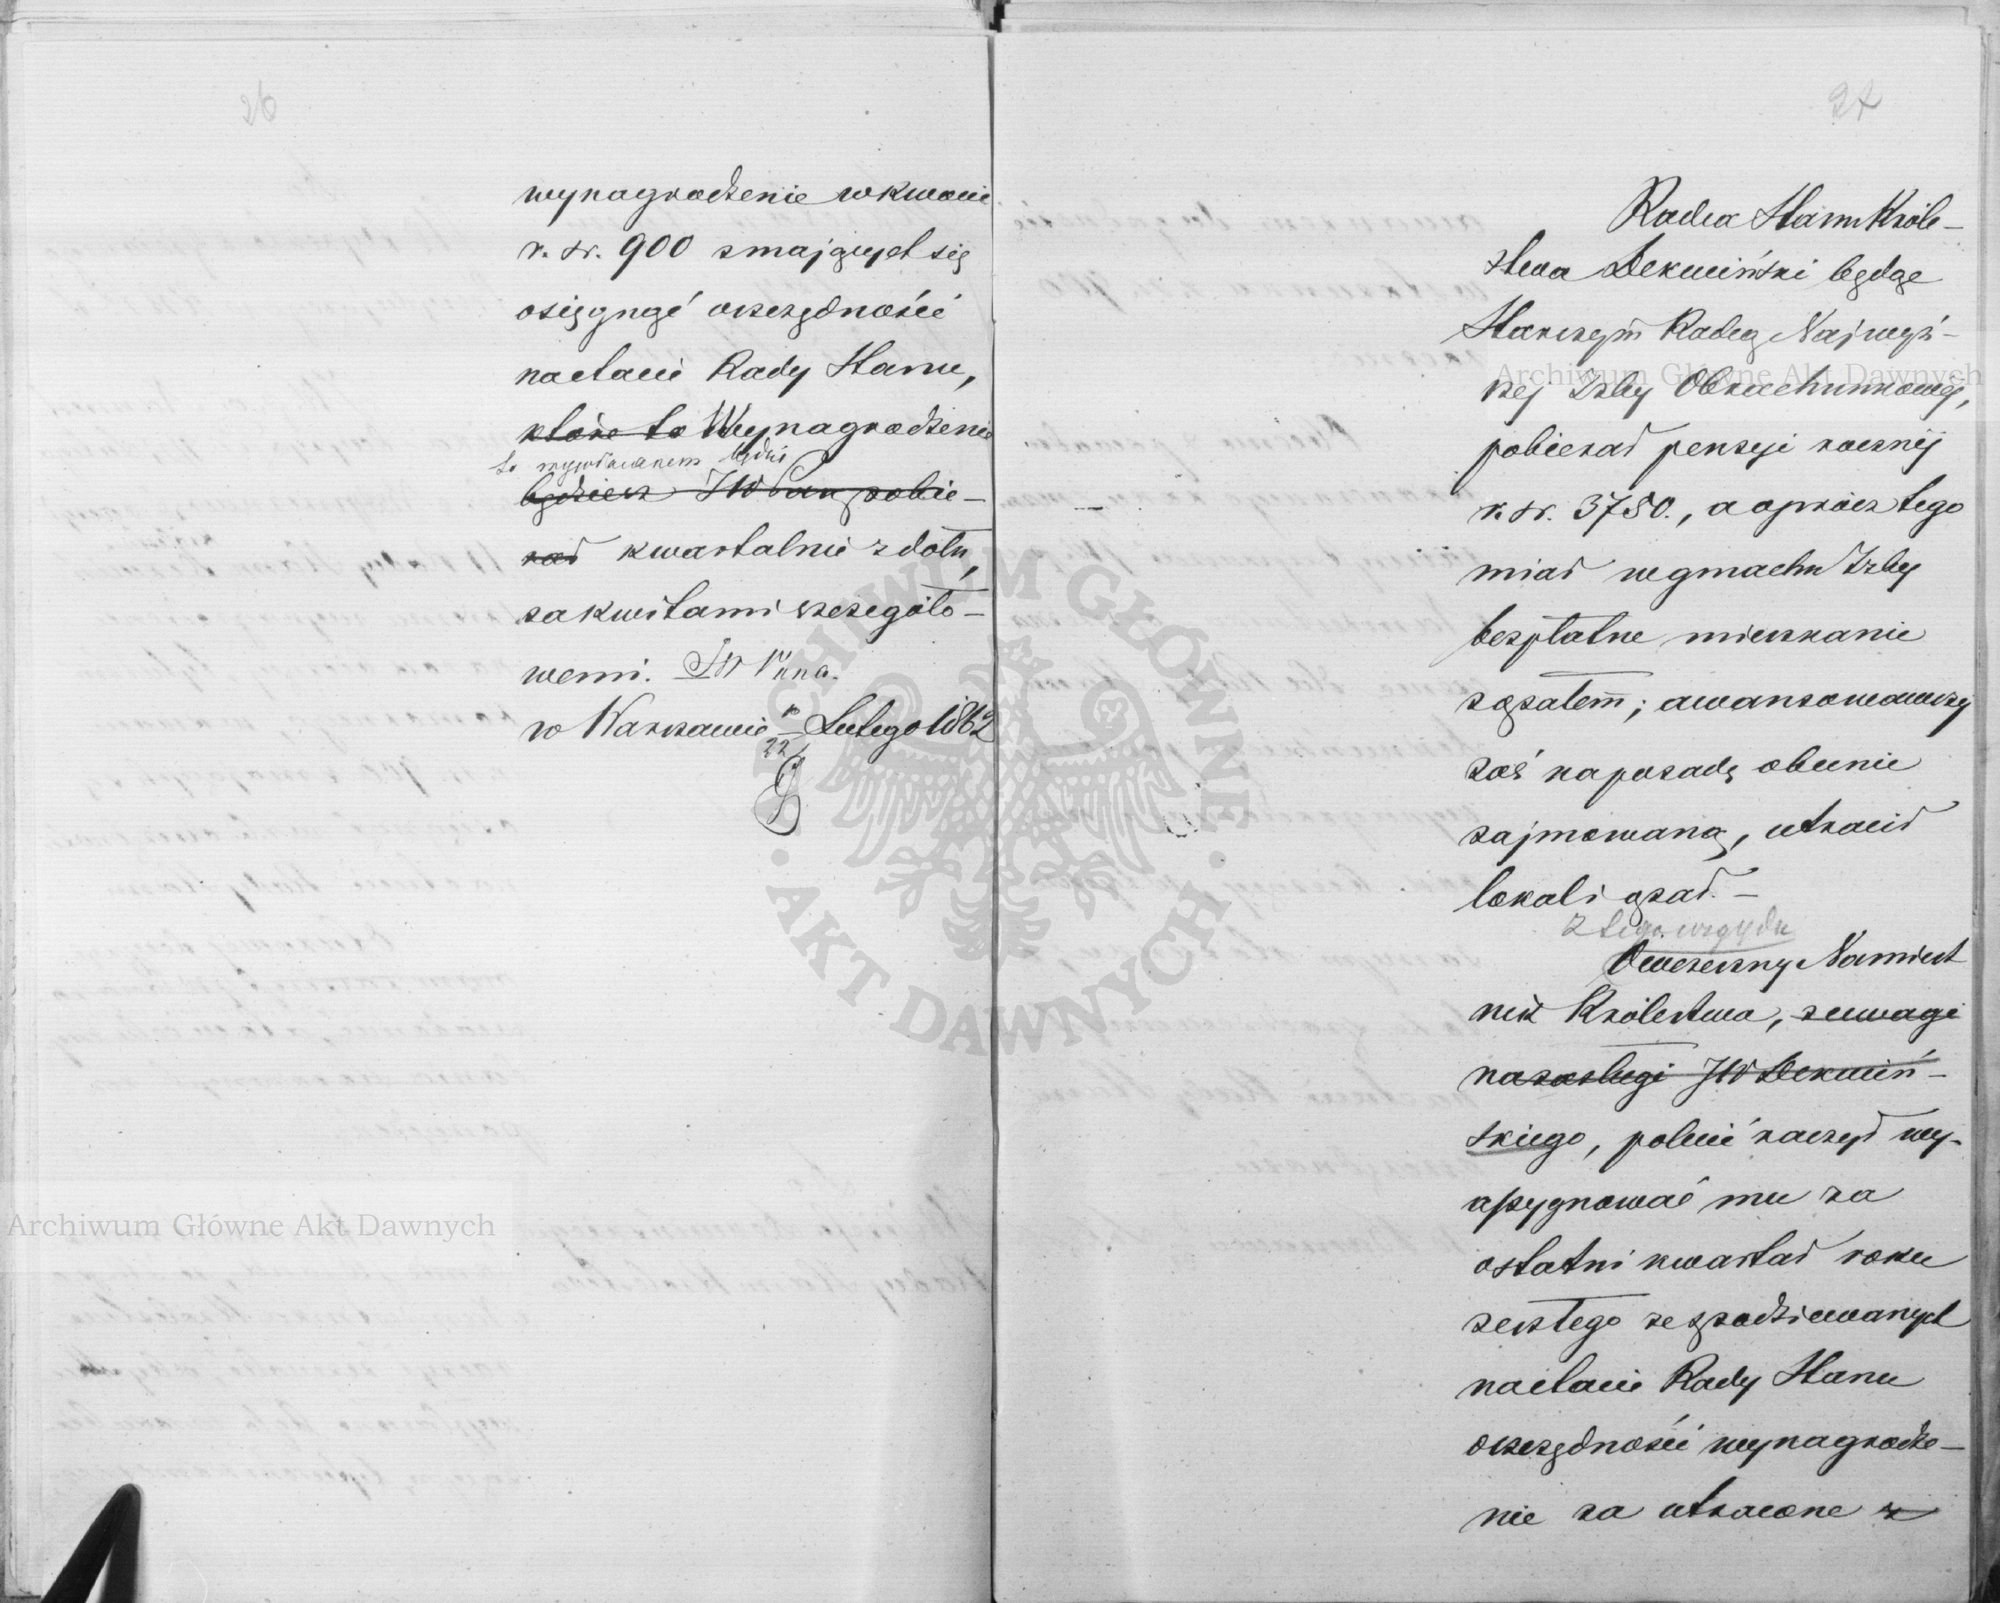 26
wynagrodzenie w kwocie
r. sr. 900 z mających się
osięgnąć oszczędności
na etacie Rady Stanu,
które to Wynagrodzenie
to wypłacanem będzie
będziesz JW Pan pobie-
rał kwartalnie z dołu,
za kwitami szczegóło-
wemi. JW Pana.
w Warszawie Lutego 1862
22
27
Radca Stanu Króle-
stwa Dekuciński będąc
Starszym Radcą Najwyż-
szej Izby Obrachunkowej,
pobierał pensyi rocznéj
r. sr. 3750., a oprócz tego
miał w gmachu Izby
bezpłatne mieszkanie
z opałem; awansowawszy
zaś na posadę obecnie
zajmowaną, utracił
lokal i opał. –
z tego względu
Owczesny Namiest
nik Królestwa, z uwagi
na zasługi JW Dekuciń-
skiego, polecić raczył wy-
assygnować mu za
ostatni kwartał roku
zeszłego ze spodziewanych
na etacie Rady Stanu
oszczędności wynagrodze-
nie za utracone z
Archiwum Główne Akt Dawnych
Archiwum Główne Akt Dawnych
ARCHIWUM GŁÓWNE · AKT DAWNYCH ·